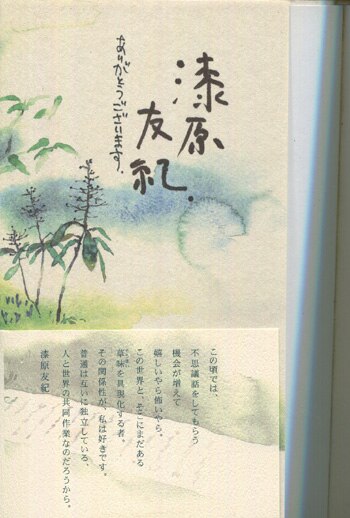 漆原
友紀.
ありがとうございます.
この頃では、
不思議話をしてもらう
機会が増えて
嬉しいやら怖いやら。
この世界と、そこにまだある
草昧を具現化する者。
その関係性が、私は好きです。
普通は互いに独立している、
人と世界の共同作業なのだろうから。
漆原友紀